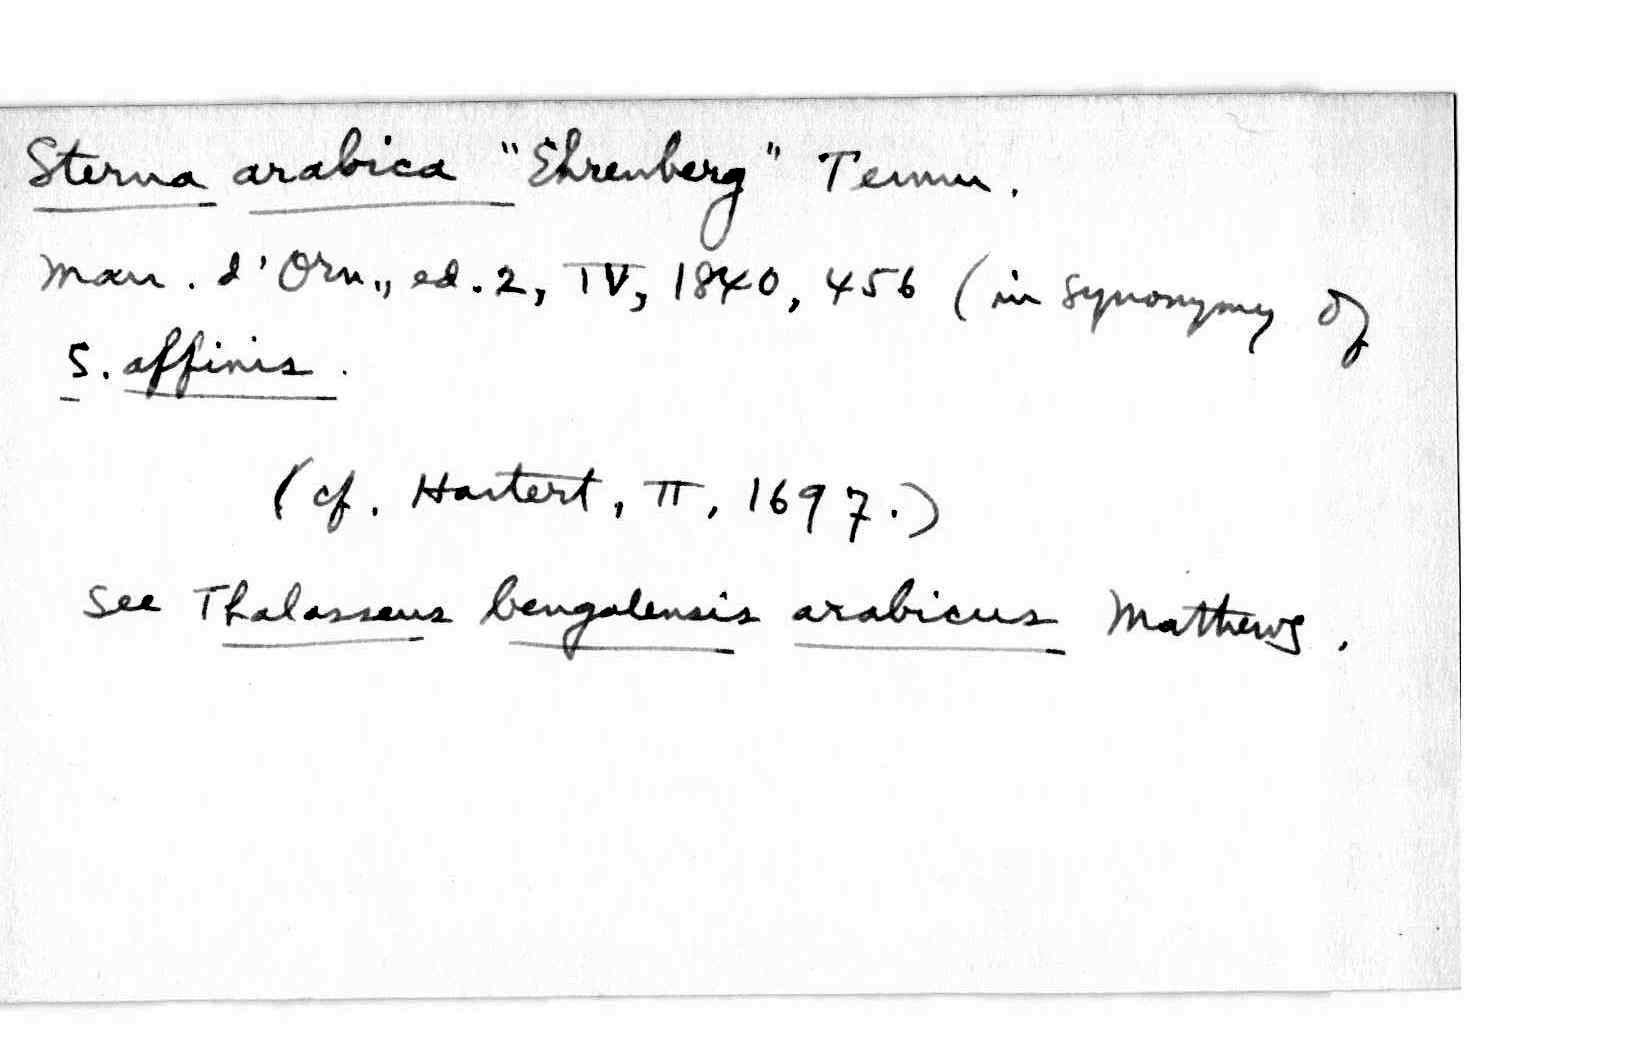 Sterna arabica "Ehrenberg" Temm.
Man. d'Orn., ed. 2, IV, 1840, 456 (in synonymy of
S. affinis.
(cf. Hartert, II, 1697.)
See Thalasseus bengalensis arabicus Mathews.